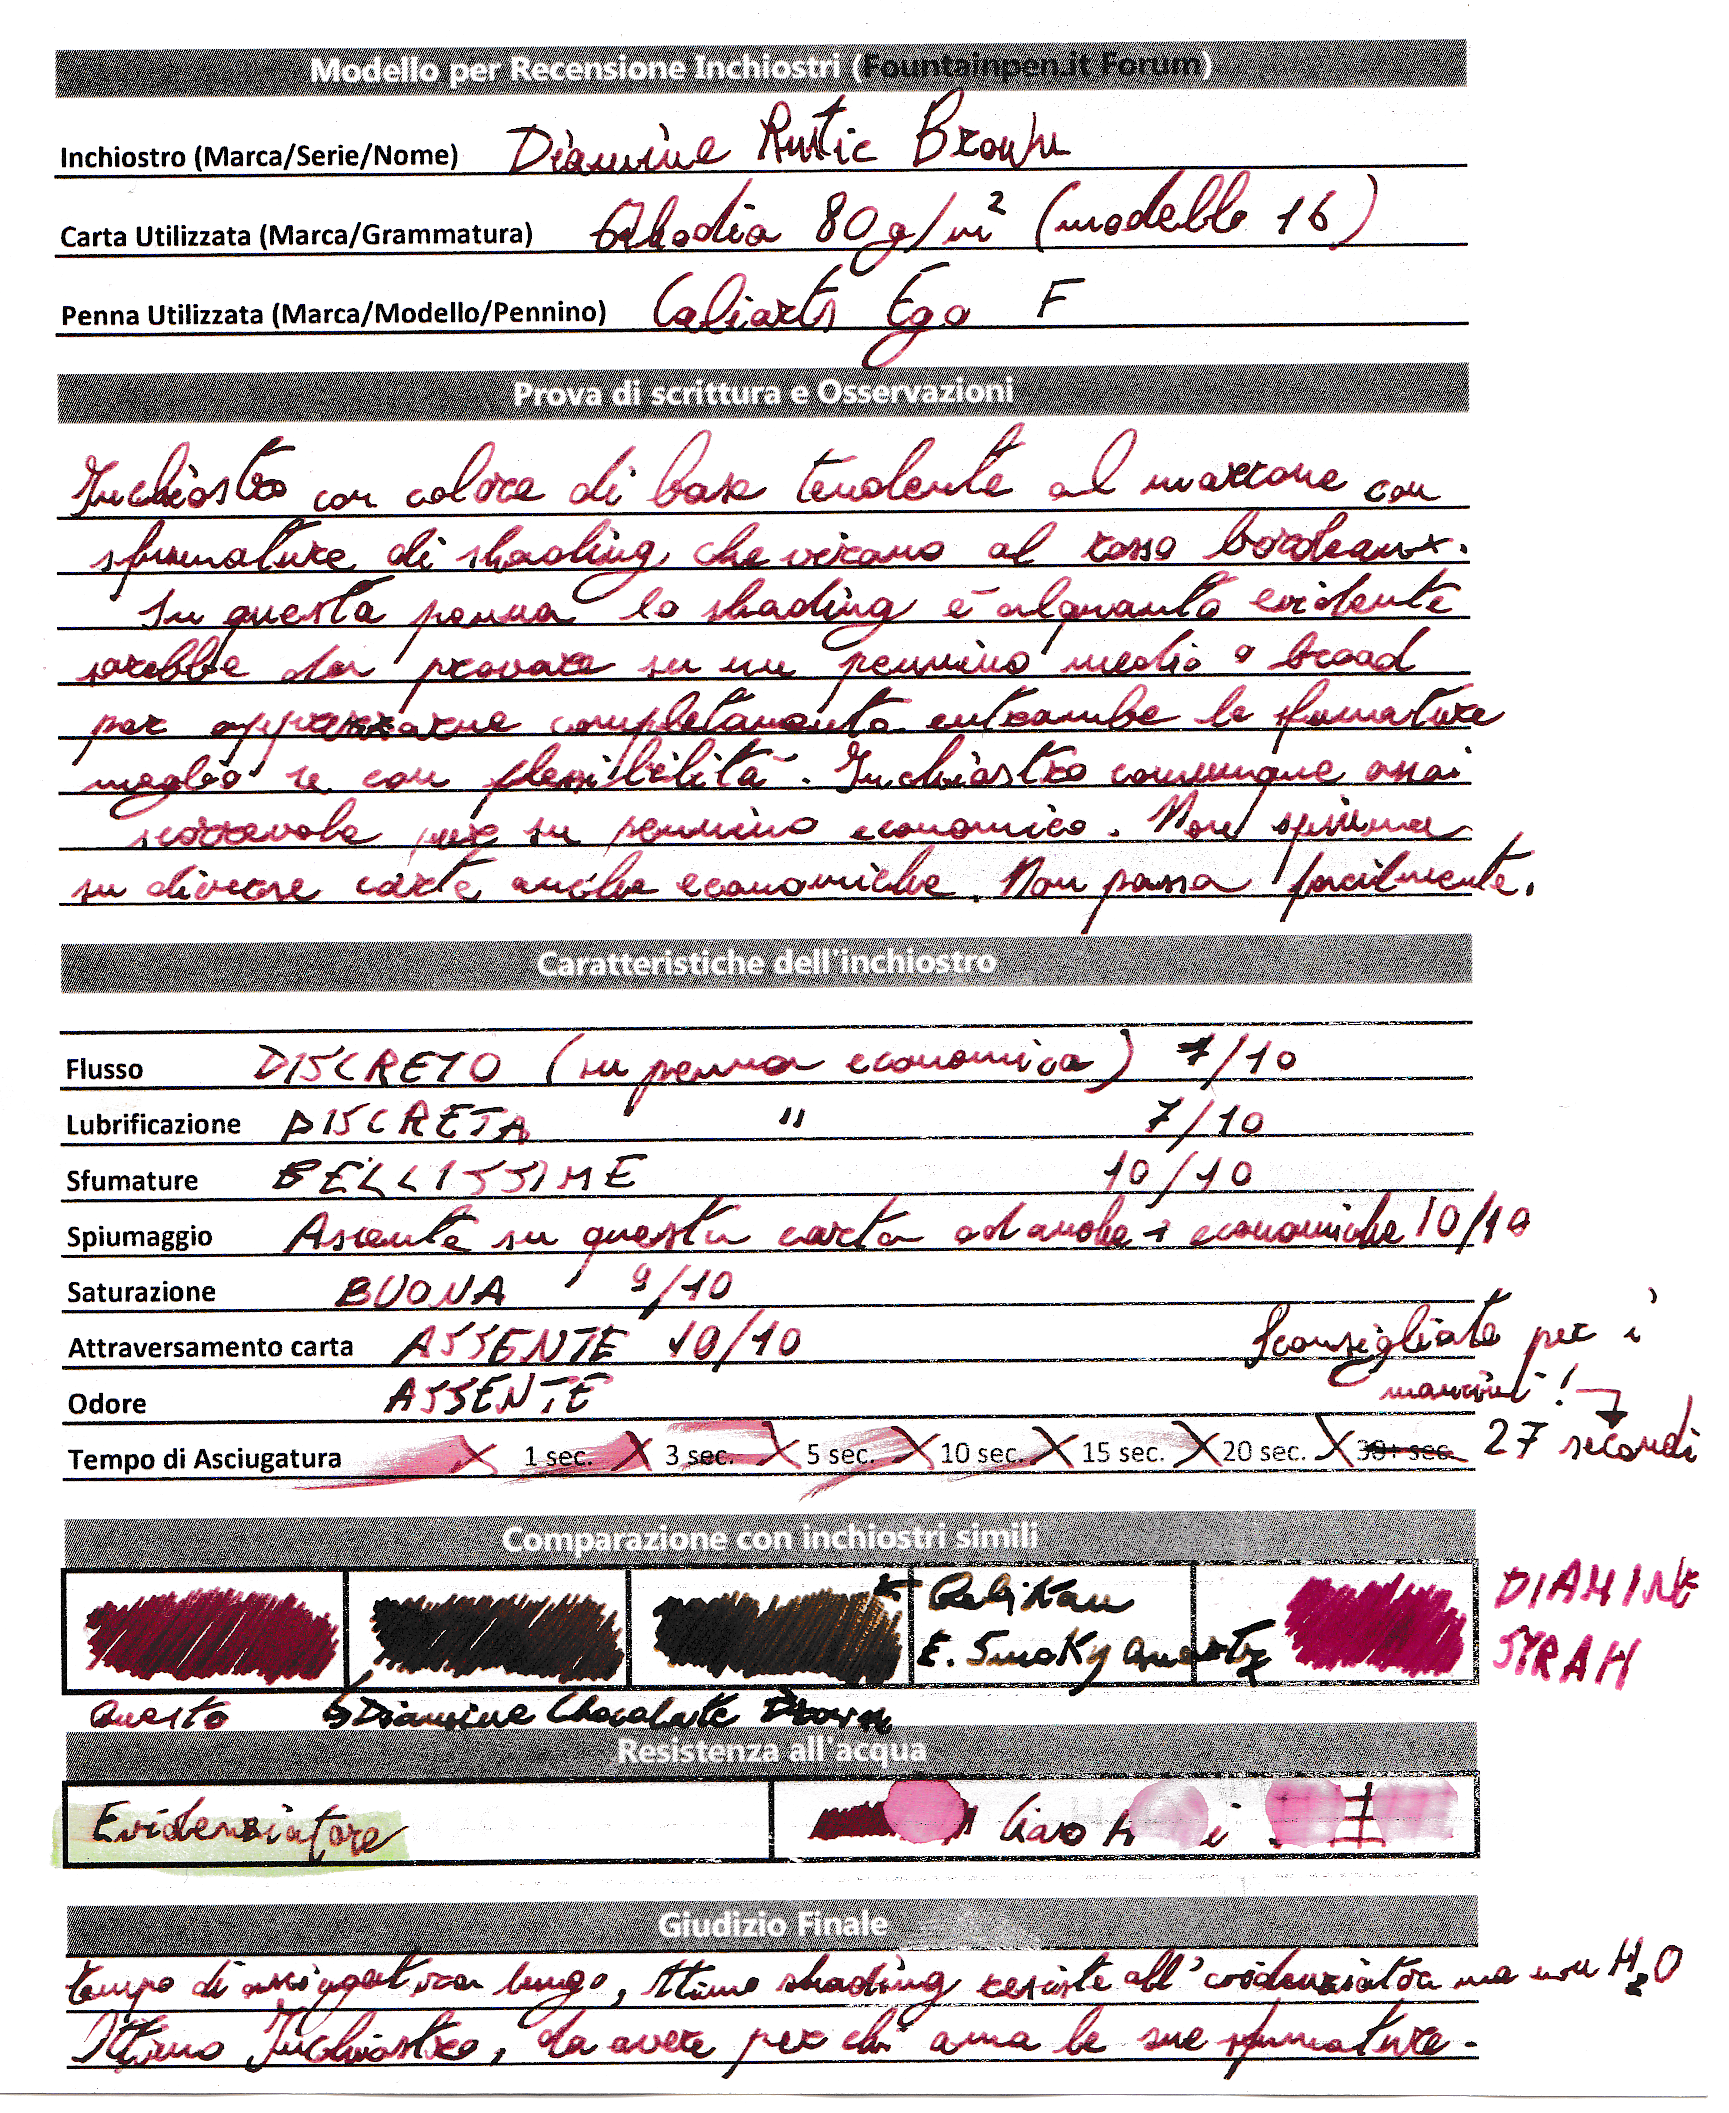 Modello per Recensione Inchiostri (Fountainpen.it Forum)
Inchiostro (Marca/Serie/Nome) Diamine Rustic Brown
Carta Utilizzata (Marca/Grammatura) Rhodia 80g/m² (modello 16)
Penna Utilizzata (Marca/Modello/Pennino) Caliarts Ego F
Prova di scrittura e Osservazioni
Inchiostro con colore di base tendente al marrone con
sfumature di shading che virano al rosso bordeaux.
In questa penna lo shading è alquanto evidente
sarebbe da provare su un pennino medio o broad
per apprezzarne completamente entrambe le sfumature
meglio se con flessibilità. Inchiostro comunque assai
scorrevole pur su pennino economico. Non spiuma
su diverse carte anche economiche. Non passa facilmente.
Caratteristiche dell'inchiostro
Flusso DISCRETO (su penna economica) 7/10
Lubrificazione DISCRETA " 7/10
Sfumature BELLISSIME 10/10
Spiumaggio Assente su questa carta ed anche + economiche 10/10
Saturazione BUONA 9/10
Attraversamento carta ASSENTE 10/10 Sconsigliato per i
Odore ASSENTE mancini!
Tempo di Asciugatura 1 sec. 3 sec. 5 sec. 10 sec. 15 sec. 20 sec. 30+ sec. 27 secondi
Comparazione con inchiostri simili
Pelikan DIAMINE
E. Smoky Quartz SYRAH
Questo Diamine Chocolate Brown
Resistenza all'acqua
Evidenziatore Ciao
Giudizio Finale
tempo di asciugatura lungo, ottimo shading resiste all'evidenziatore ma non H₂O
Ottimo Inchiostro, da avere per chi ama le sue sfumature.